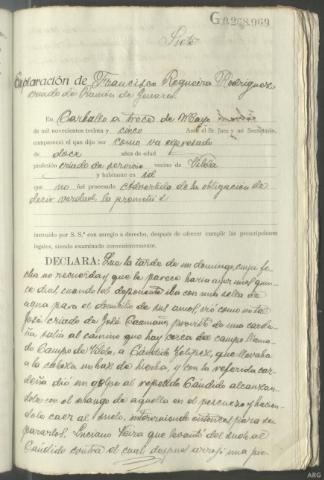 G 0,268,969
Siete
Declaración de Francisco Regueira Rodriguez
criado de Ramón de
En Carballo a trece de Mayo
de mil novecientos treinta y cinco Ante el Sr. Juez y mi Secretario,
compareció el que dijo ser como va expresado
de doce años de edad
profesión criado de servicio vecino de
y habitante en id
que no fué procesado advertido de la obligación de
decir verdad la prometió
instruído por S. Sª con arreglo a derecho, después de ofrecer cumplir las prescripciones
legales, siendo examinado convenientemente.
DECLARA: Que la tarde de un domingo cuya fe-
cha no recuerda y que le parece haria ayer unos quin-
ce dias cuando el deponente iba con una sella de
agua para el domicilio de sus amos, vió como un tal
José criado de José Caamaño, provisto de una
salía al camino que hay cerca de campo llama-
do Campo de, a Cándido Lopez, que llevaba
a la cabeza un haz de hierba, y con la referida
dió un golpe al repetido Cándido alcanzan-
dole con el mango de aquella en el pescuezo y hacien-
dolo caer al suelo, interviniendo entonces para se-
pararlos, Luciano Vieira que levantó del suelo al
Cándido contra el cual despues arrojó una pie-
ARG